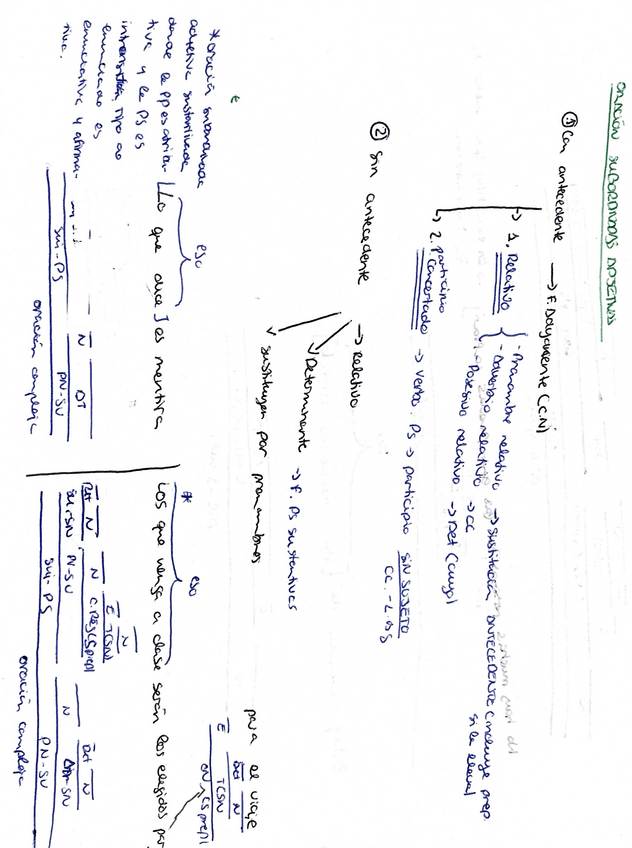 ORACIÓN SUBORDINADAS ADJETIVAS
① Con antecedente → F. Adyacente (C.N)
→ 1. Relativo
- Pronombre relativo → sustitución ANTECEDENTE (incluye prep. si la lleva)
- Adverbio relativo → CC
- Posesivo relativo → Det (cuyo)
→ 2. participio concertado → verbo. PS → participio SIN SUJETO
② Sin antecedente → Relativo
✓ Determinante → F. PS sustantivas
✓ sustituyen por pronombres
*oración subordinada
adjetiva sustantivada
donde la PP es atribu-
tiva y la PS es
intransitiva. Tipo de
enunciado es
enunciativa y afirma-
tiva.
eso
[Lo que dice] es mentira
N
AT
suj-PS
PN-SV
oración compleja
*
eso
Los que venga a clase serán los elegidos para
para el viaje
E
Det N
T(SN)
CN (S prep)
N
E T(SN)
Det N
N C.Reg (S prep)
suj-SN PN-SV
suj-PS
Det N
N
SN
PN-SV
oración compleja